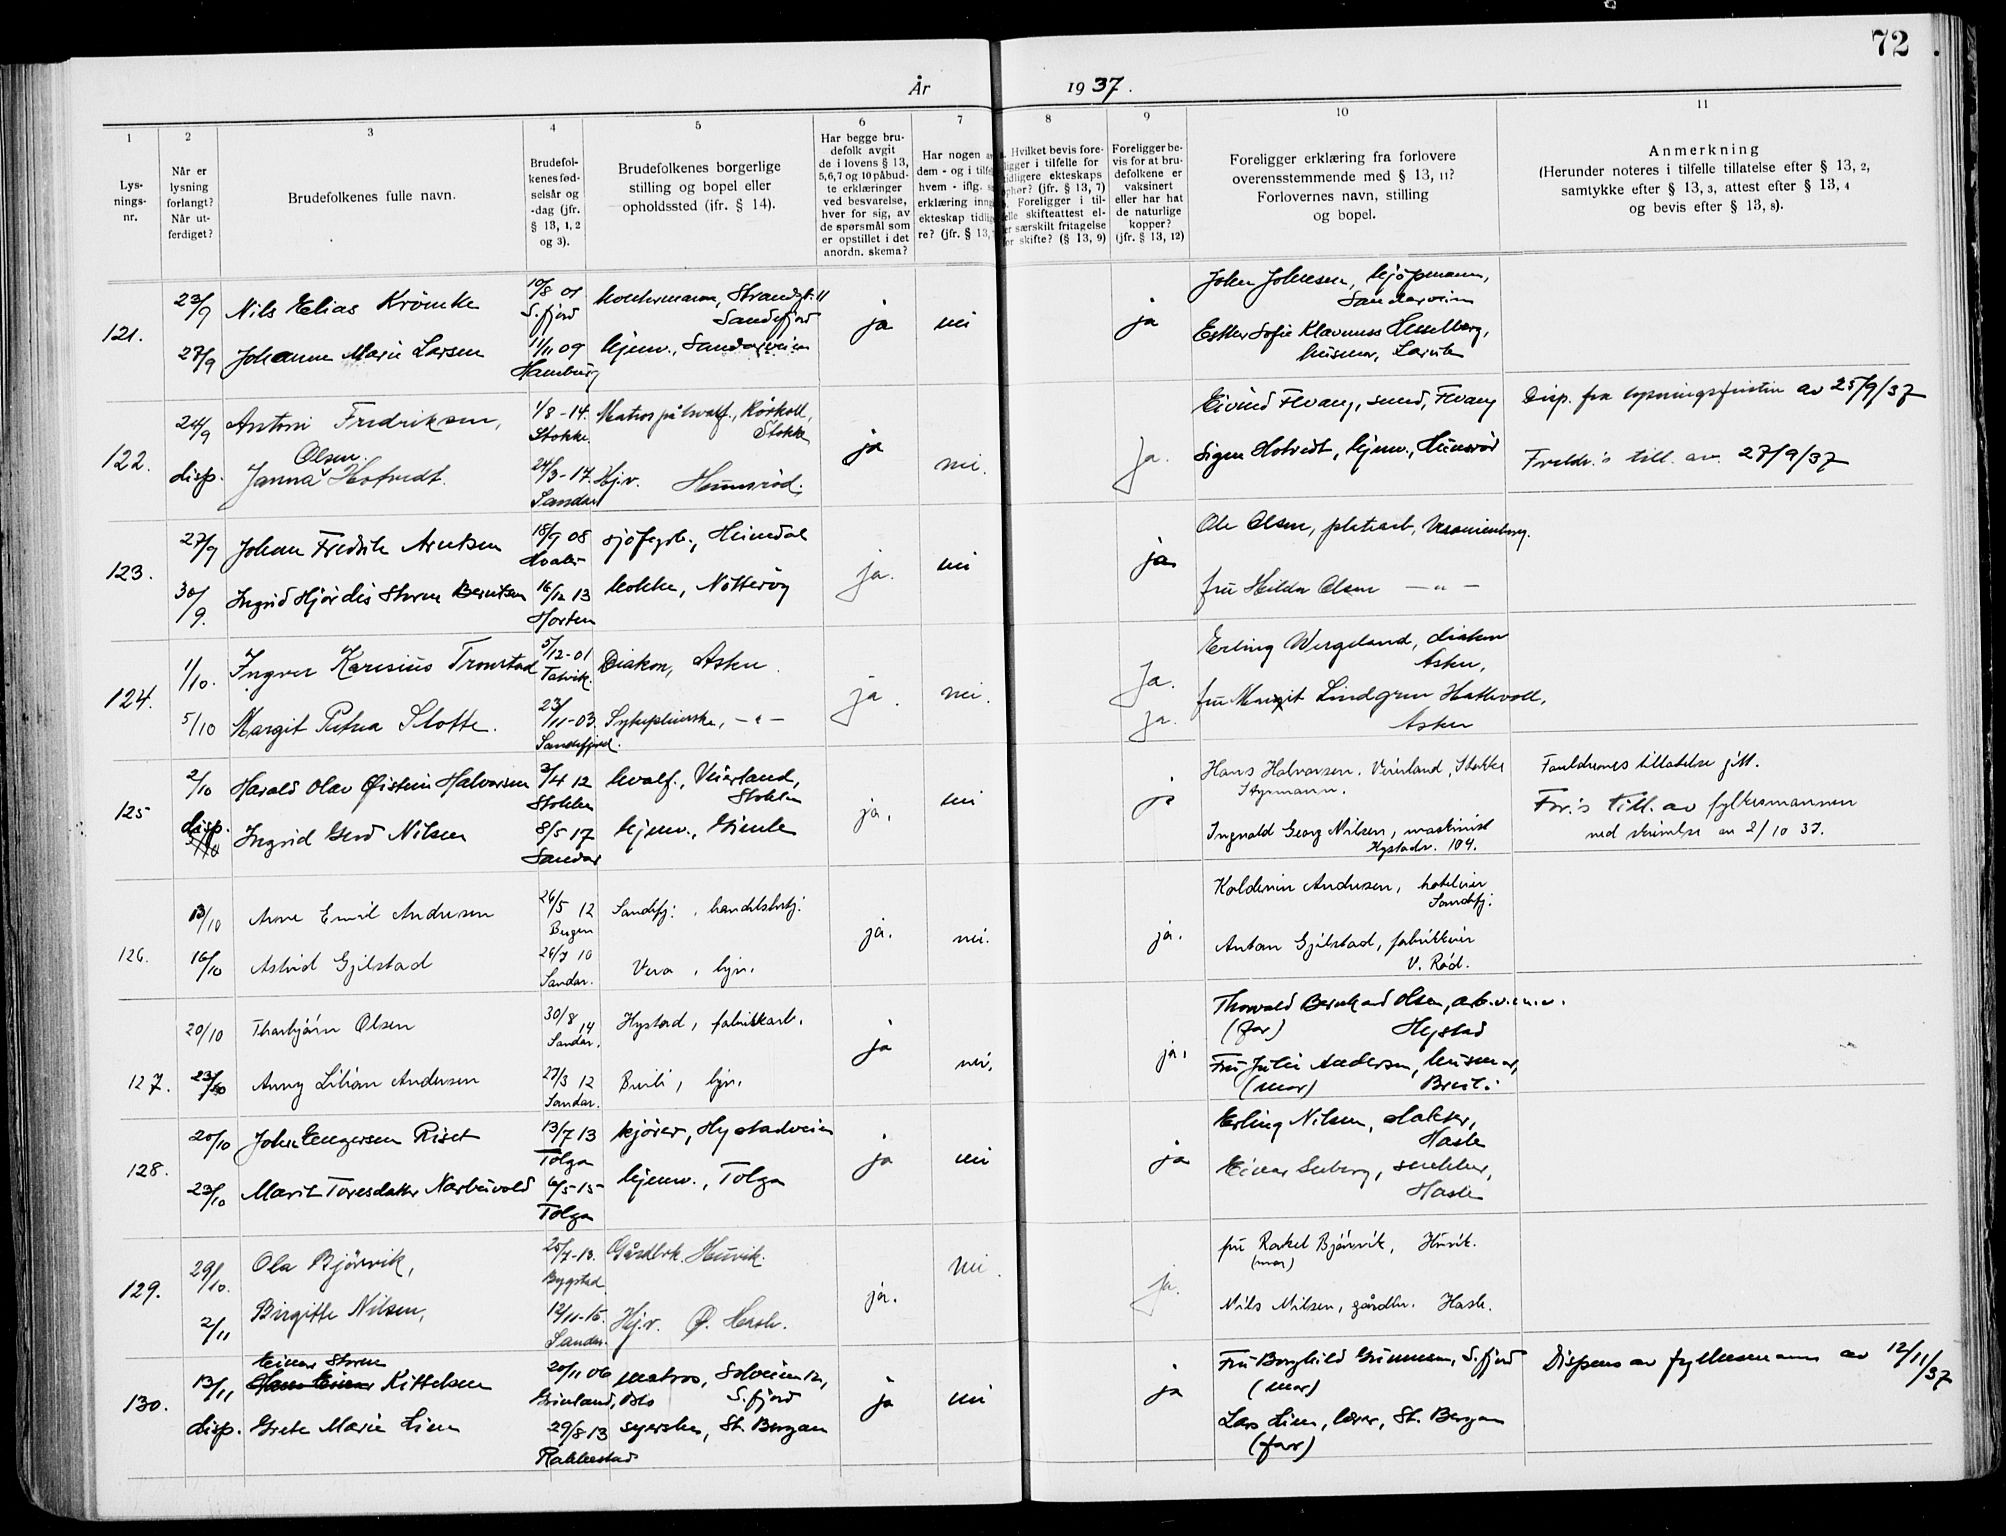 72
År 1937.
1 2 3 4 5 6 7 8 9 10 11
Lys-
nings-
nr.
Når er
lysning
forlangt?
Når ut-
ferdiget?
Brudefolkenes fulle navn.
Brudefol-
kenes fød-
selsår og
-dag (jfr.
§ 13, 1, 2
og 3).
Brudefolkenes borgerlige
stilling og bopel eller
opholdssted (ifr. § 14).
Har begge bru-
defolk avgit
de i lovens § 13,
5, 6, 7 og 10 påbud-
te erklæringer
ved besvarelse,
hver for sig, av
de spørsmål som
er opstillet i det
anordn. skema?
Har nogen
dem - og i
hvem - iflg.
erklæring
ekteskap
re? (jfr. § 13,
Hvilket bevis fore-
ligger i tilfelle for
tidligere ekteskaps
ophør? (jfr. § 13, 7)
Foreligger i til-
felle skifteattest el-
er særskilt fritagelse
for skifte? (§ 13, 9)
Foreligger be-
vis for at bru-
defolkene er
vaksinert
eller har hat
de naturlige
kopper?
(jfr. § 13, 12)
Foreligger erklæring fra forlovere
overensstemmende med § 13, 11?
Forlovernes navn, stilling
og bopel.
Anmerkning
(Herunder noteres i tilfelle tillatelse efter § 13, 2,
samtykke efter § 13, 3, attest efter § 13, 4
og bevis efter § 13, 8).
121. 23/9 Nils Elias Krömke 10/8 01 S.fjord kontormann, Strandgt. 11 Sandefjord ja nei ja John Johnsen, kjöpmann, Sandarveien
27/9 Johanne Marie Larsen 11/11 09 Hamburg hjemv., Sandarveien Esther Sofie Klaveness Hesselberg, husmor, Larvik
122. 24/9 Antoni Fredriksen, 1/8 - 14. Stokke. Matros på hvalf., Rörkoll, Stokke ja nei. Ja. Eivind Fevang, smed, Fevang Disp. fra lysningsfristen av 25/9/37
disp. Janna Olsen Hotvedt. 24/3 - 17. Sandar Hj.v. Hunsröd. Signe Hotvedt, hjemv., Hunsröd Foreldr.'s till. av. 27/9/37
123. 27/9 Johan Fredrik Arntsen 18/9 08 Hvaler sjöfyrb., Heimdal ja. nei ja Ole Olsen, platearb., Vesmenborg.
30/9. Ingrid Hjördis Storm Berntsen 16/12 13 Horten kokke, Nötteröy fru Hilda Olsen — " —
124. 1/10. Ingver Karesius Tronstad 5/12 - 01 Talvik. Diakon, Asker. ja. nei. Ja. Erling Wergeland, diakon Asker,
5/10 Margit Petra Slotte. 23/11 - 03. Sandefjord. Sykepleierske, — " — ja. fru Margit Lindgren Hattevoll, Asker
125 2/10 Harald Olav Øistein Halvorsen 3/4 12 Stokke hvalf., Veierland, Stokke ja. nei Hans Halvorsen. Veierland, Stokke Styrmann. Foreldrenes tillatelse gitt.
disp. Ingrid Gerd Nilsen 8/5 17 Sandar hjemv., Gimle Ingvald Georg Nilsen, maskinist Hystadv. 104. For.'s till. av fylkesmannen ved skrivelse av 2/10 37.
126. 13/10 Arne Emil Andresen 26/5 12 Bergen Sandefj., handelsbetj. ja. nei. ja. Kolderin Andresen, hoteleier Sandefj.
16/10 Astrid Gjelstad 26/7 10 Sandar. Vera, hjv. Anton Gjelstad, fabrikkeier V. Röd.
127. 20/10 Thorbjörn Olsen 30/8 14 Sandar. Hystad, fabrikkarb. ja nei. ja. Thorvald Bernhard Olsen, arb.v.v.m.v. (far) Hystad
23/10 Anny Lilian Andersen 27/3 12 Sandar. Breili, hjv. Fru Julie Andersen, husmor, (mor) Breili
128. 20/10 John Engersen Riset 13/7 13 Tolga kjörer, Hystadveien ja nei ja Erling Nilsen, slakter, Hasle
23/10 Marit Toresdatter Narbuvold 6/5 - 15 Tolga hjemv., Tolga Einar Seeberg, snekker, Hasle
129. 29/10. Ola Björvik, 25/7 - 13. Bygstad Gårdbrk. Huvik. ja. nei. ja. fru Rakel Björvik, Huvik. (mor)
2/11 Birgitte Nilsen, 12/11 - 16. Sandar. Hj.v. Ø. Hasle. Nils Nilsen, gårdbr. Hasle.
130. 13/11 Einar Storm Hans Einar Kittelsen 20/11 06 Grünland, Oslo matros, Solveien 12, S.fjord ja nei ja Fru Borghild Grimmsen, S.fjord (mor) Dispens av fylkesmannen av 12/11/37
disp. Grete Marie Lien 29/8 13 Rakkestad syerske, St. Bergan Lars Lien, lærer, St. Bergan (far)